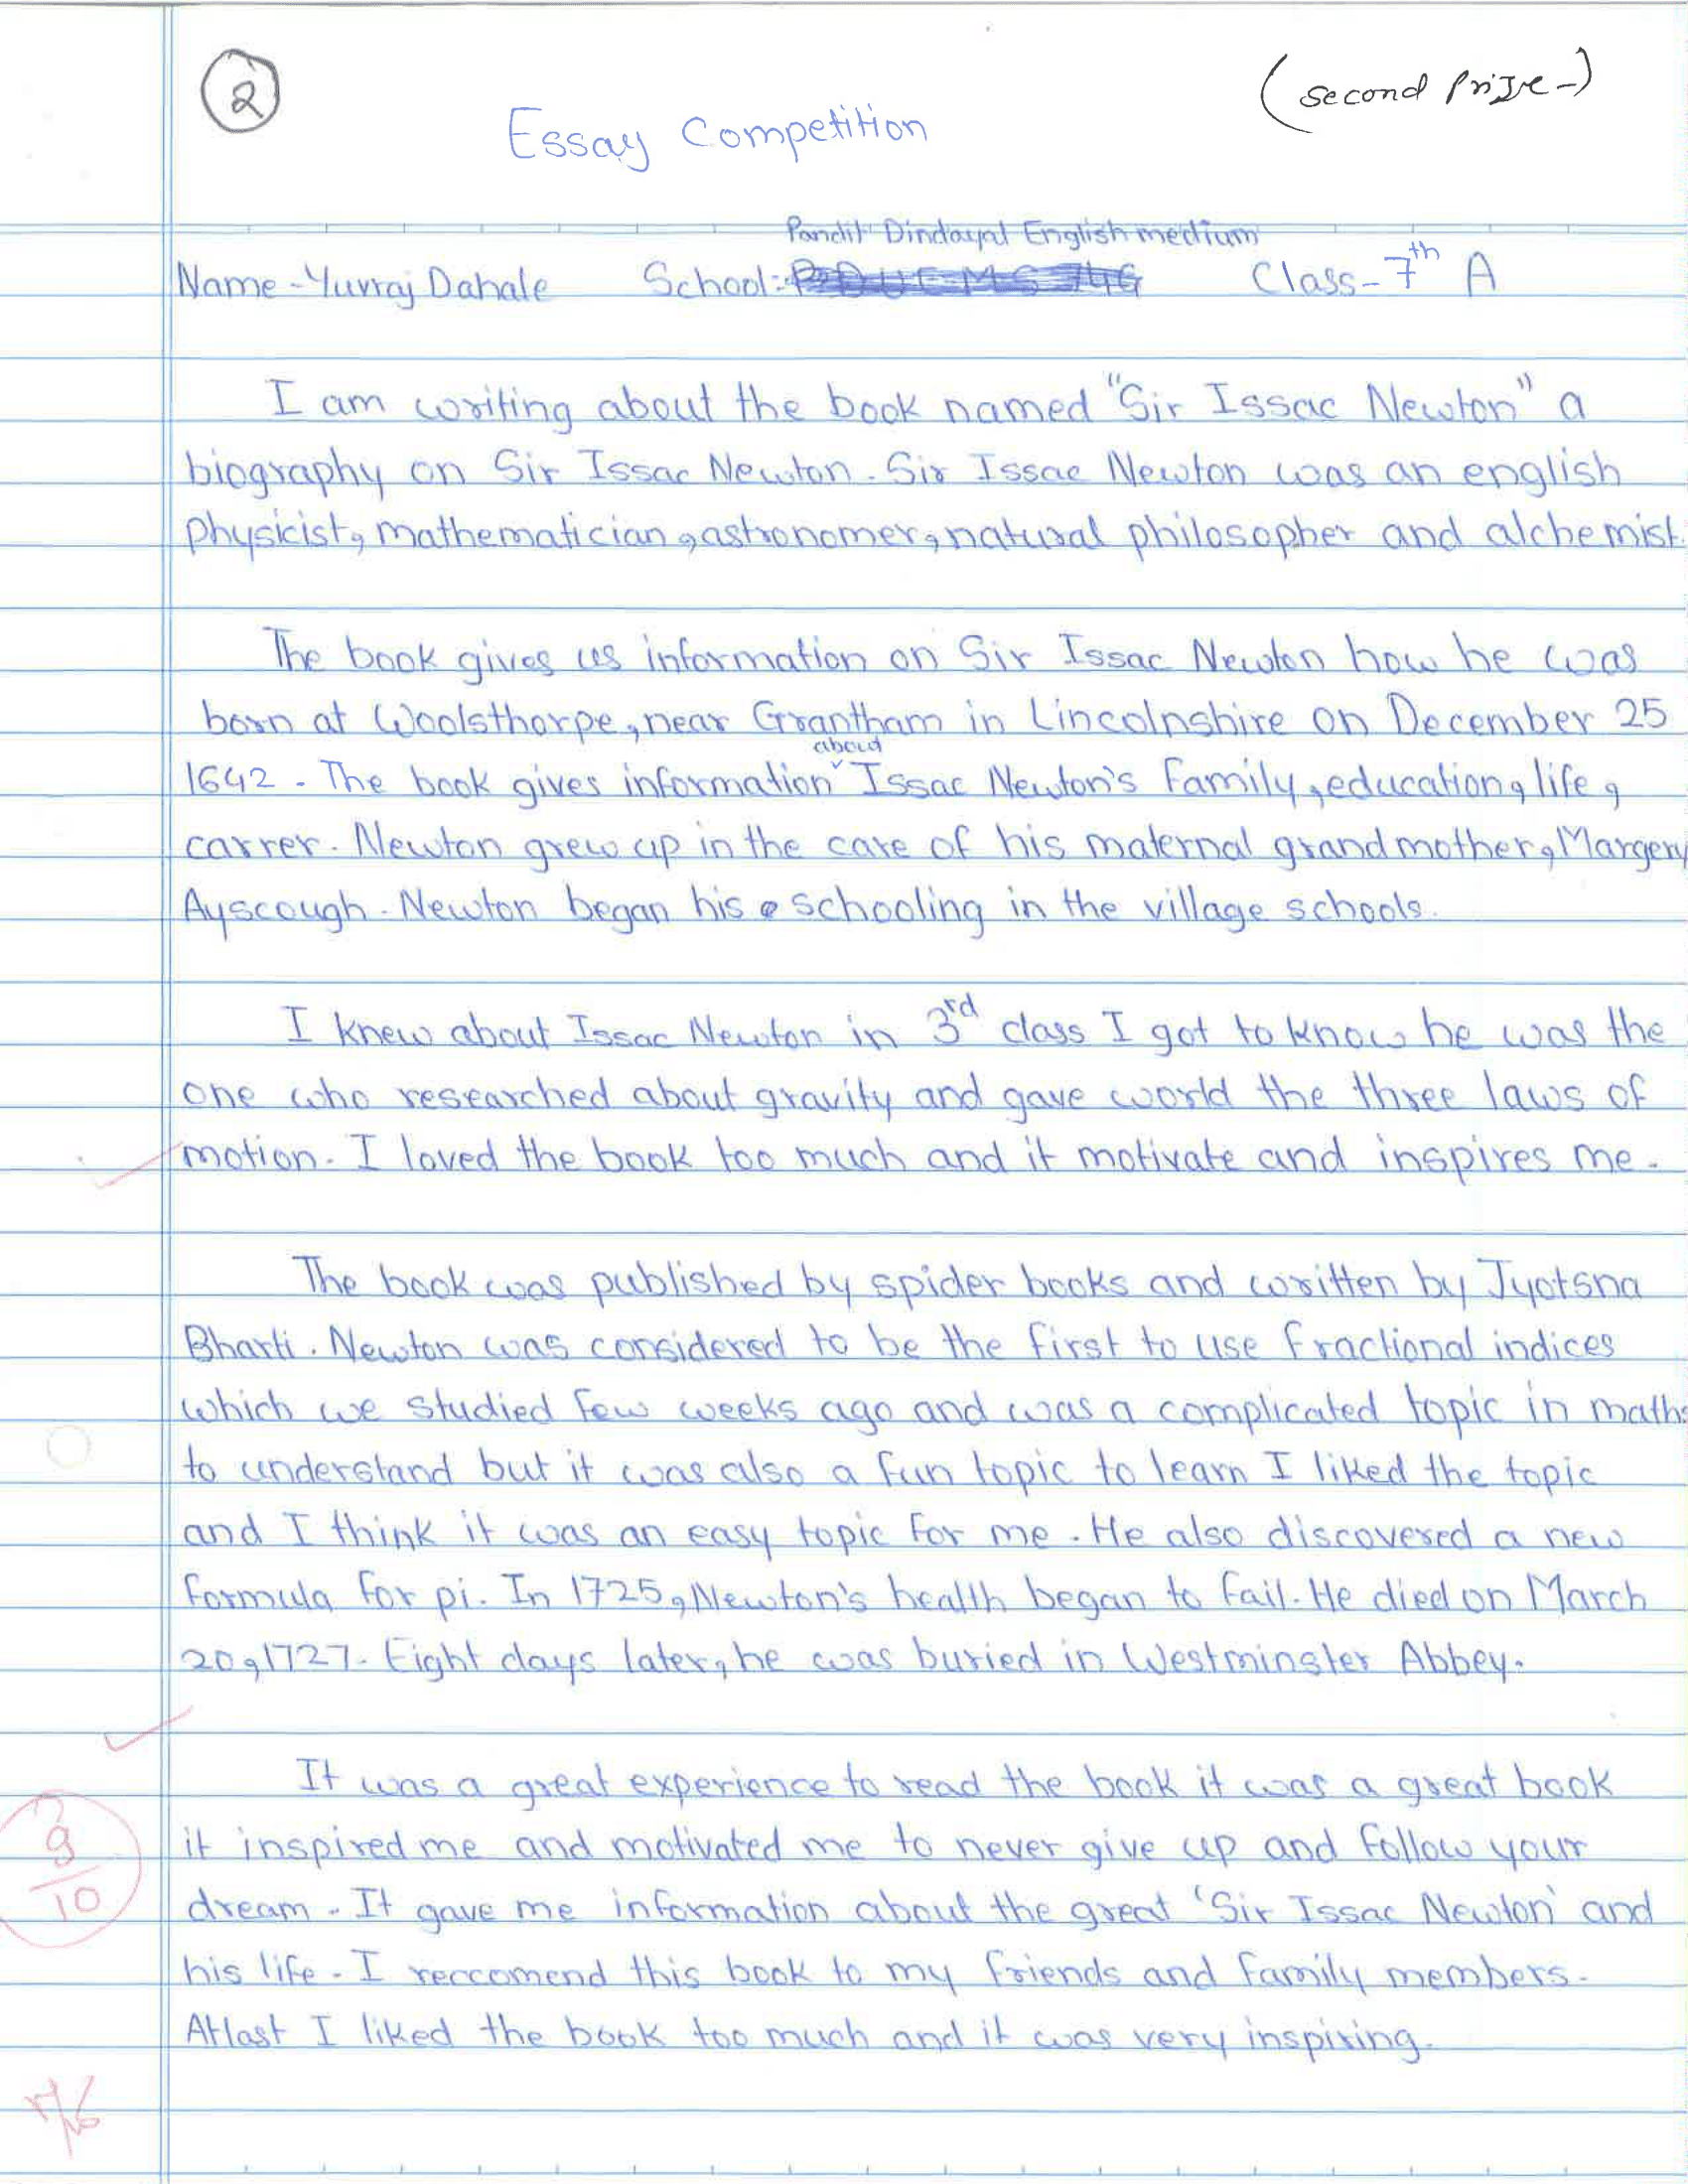 2
(second Prize-)
Essay Competition
Pandit Dindayal English medium
Name - Yuvraj Dahale School:- Class - 7th A
I am writing about the book named "Sir Issac Newton" a
biography on Sir Issac Newton. Sir Issac Newton was an english
physicist, mathematician, astronomer, natural philosopher and alchemist.
The book gives us information on Sir Issac Newton how he was
born at Woolsthorpe, near Grantham in Lincolnshire on December 25
1642. The book gives information about Issac Newton's family, education, life,
carrer. Newton grew up in the care of his maternal grandmother, Margery
Ayscough. Newton began his schooling in the village schools.
I knew about Issac Newton in 3rd class I got to know he was the
one who researched about gravity and gave world the three laws of
motion. I loved the book too much and it motivate and inspires me.
The book was published by spider books and written by Jyotsna
Bharti. Newton was considered to be the first to use fractional indices
which we studied few weeks ago and was a complicated topic in maths
to understand but it was also a fun topic to learn I liked the topic
and I think it was an easy topic for me. He also discovered a new
formula for pi. In 1725, Newton's health began to fail. He died on March
20, 1727. Eight days later, he was buried in Westminster Abbey.
It was a great experience to read the book it was a great book
it inspired me and motivated me to never give up and follow your
9/10
dream. It gave me information about the great 'Sir Issac Newton' and
his life. I reccomend this book to my friends and family members.
Atlast I liked the book too much and it was very inspiring.